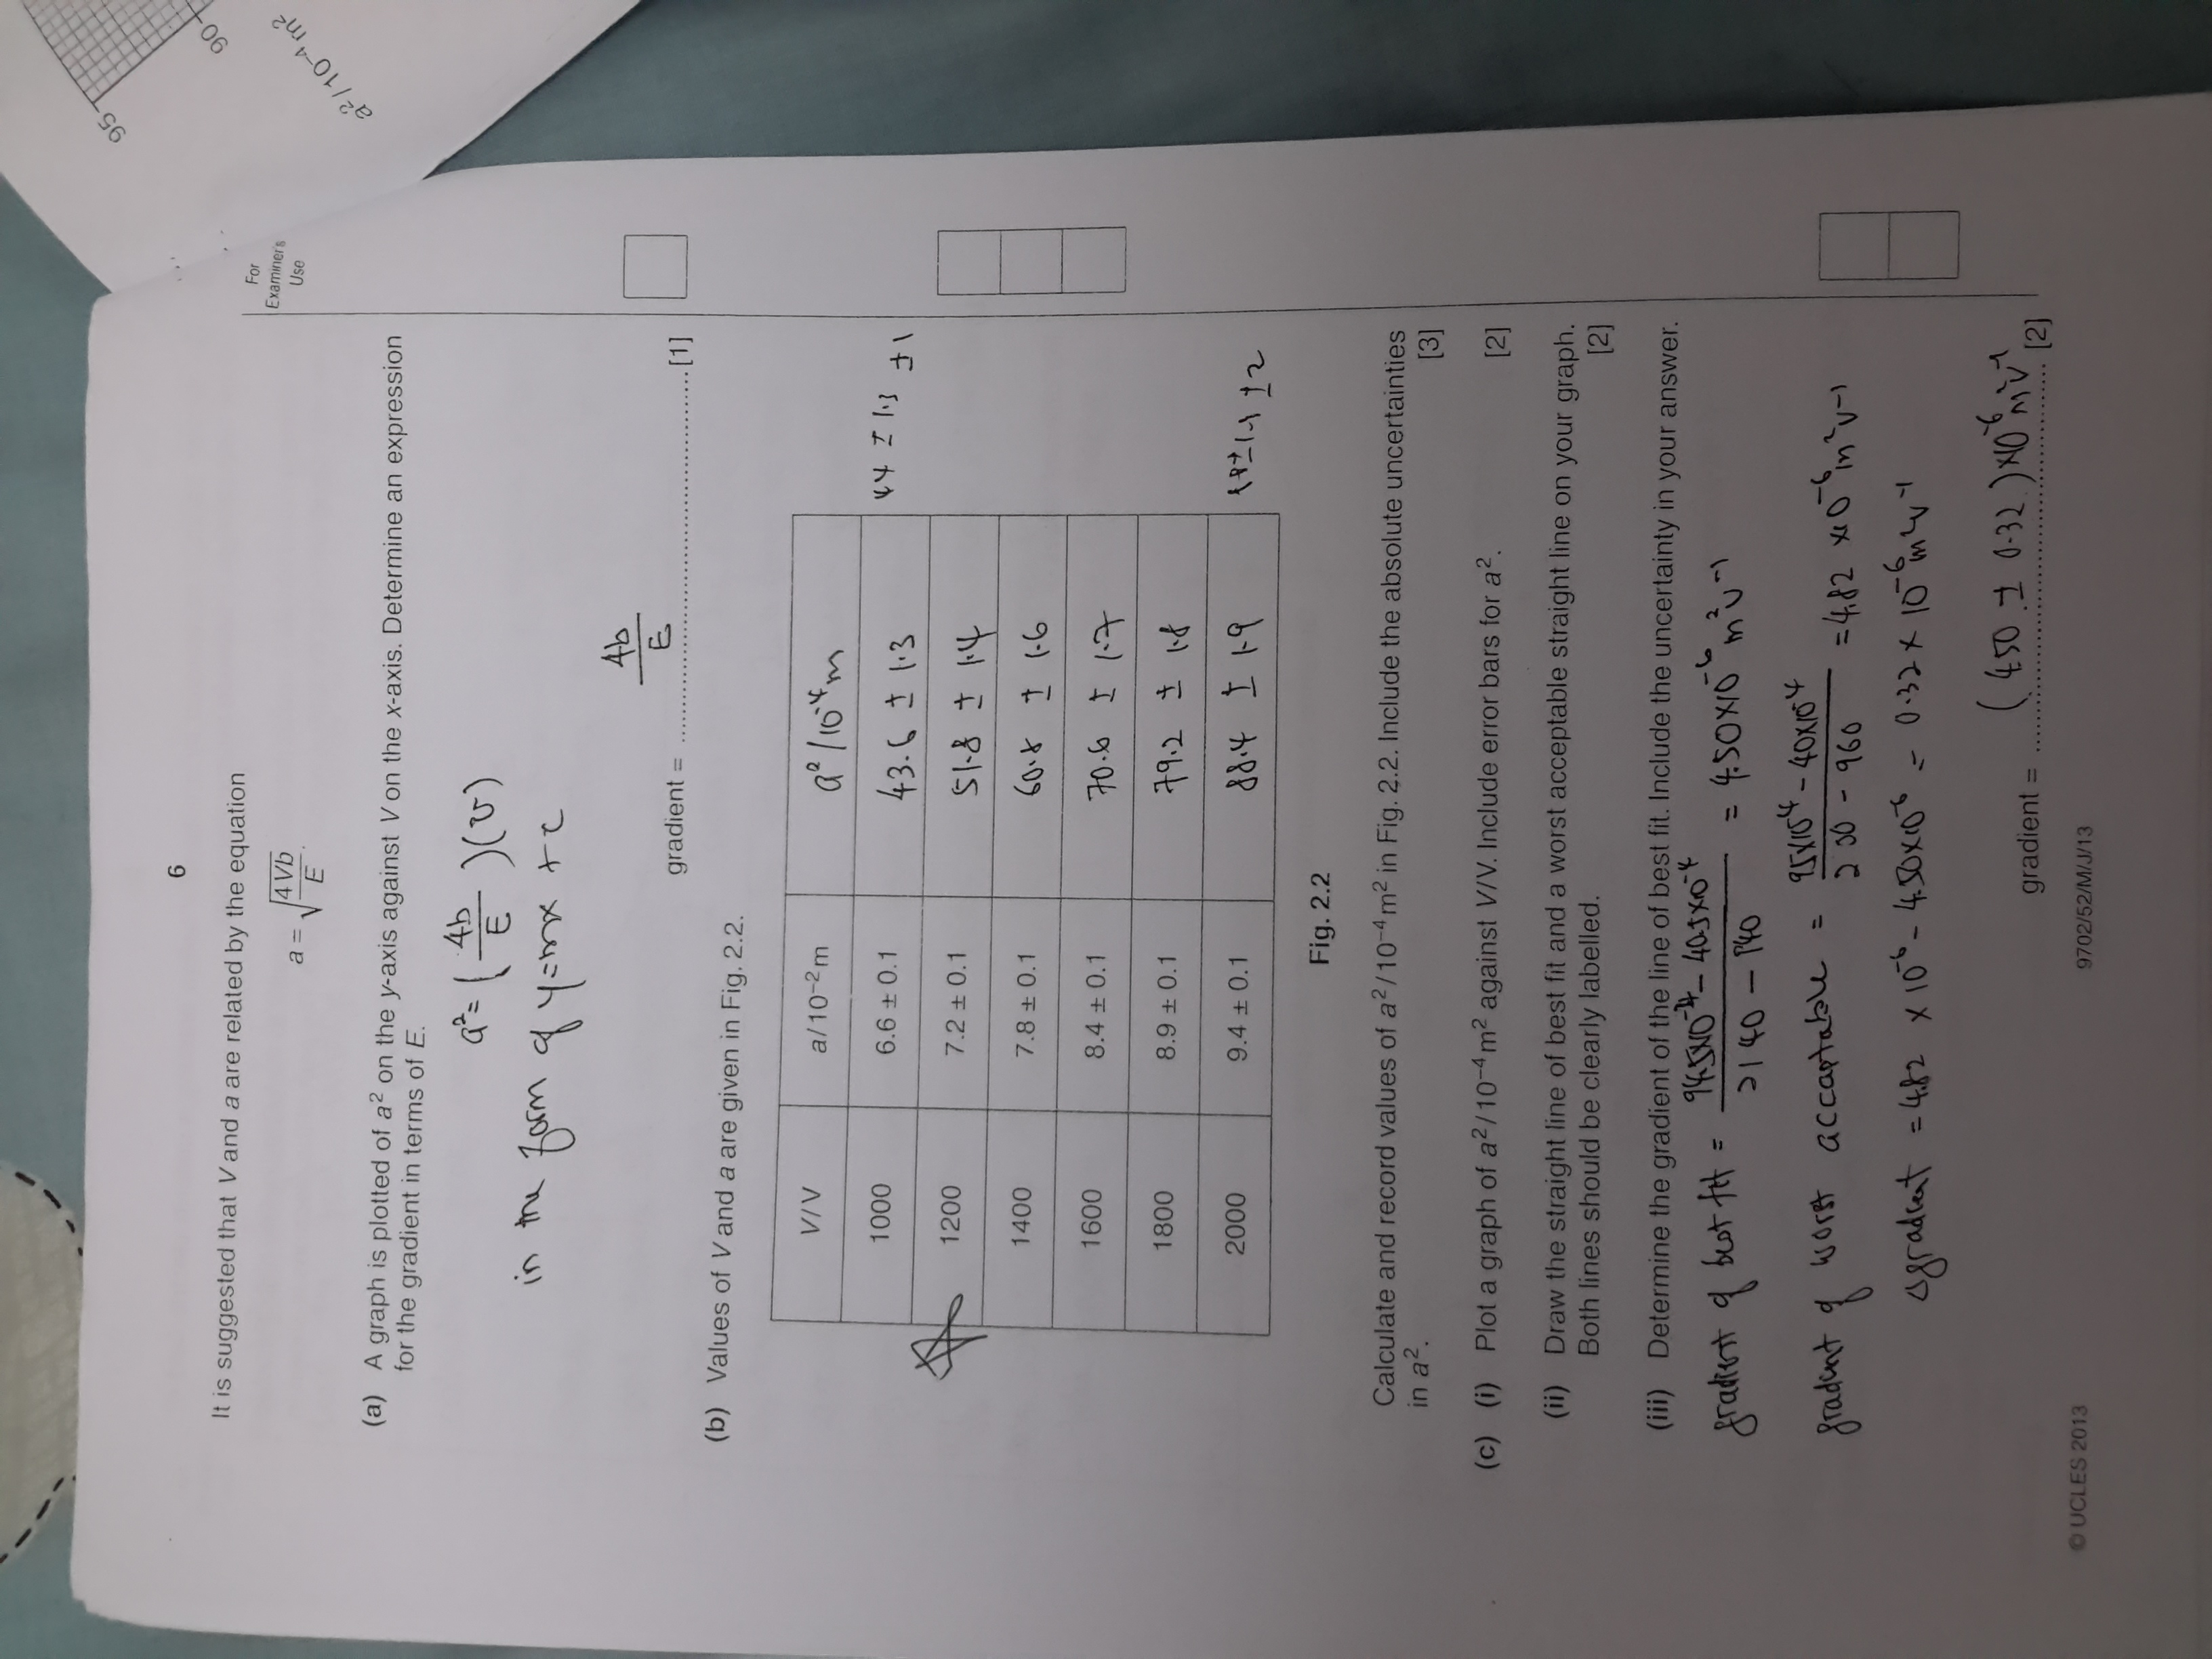 6
It is suggested that V and a are related by the equation
a = √(4Vb/E).
For
Examiner's
Use
95
90
a²/10⁻⁴ m²
(a) A graph is plotted of a² on the y-axis against V on the x-axis. Determine an expression
for the gradient in terms of E.
a² = (4b/E)(v)
in the form of y=mx + c
4b/E
gradient = ........ [1]
(b) Values of V and a are given in Fig. 2.2.
V/V a/10⁻²m a²/10⁻⁴m
1000 6.6 ± 0.1 43.6 ± 1.3 44 ± 1.3 ±1
1200 7.2 ± 0.1 51.8 ± 1.4
1400 7.8 ± 0.1 60.8 ± 1.6
1600 8.4 ± 0.1 70.6 ± 1.7
1800 8.9 ± 0.1 79.2 ± 1.8
2000 9.4 ± 0.1 88.4 ± 1.9 ±2
Fig. 2.2
Calculate and record values of a²/10⁻⁴m² in Fig. 2.2. Include the absolute uncertainties
in a². [3]
(c) (i) Plot a graph of a²/10⁻⁴m² against V/V. Include error bars for a². [2]
(ii) Draw the straight line of best fit and a worst acceptable straight line on your graph.
Both lines should be clearly labelled. [2]
(iii) Determine the gradient of the line of best fit. Include the uncertainty in your answer.
gradient of best fit = (94.5×10⁻⁴ − 40.5×10⁻⁴)/(2140 − 940) = 4.50×10⁻⁶ m²v⁻¹
gradient of worst acceptable = (95×10⁻⁴ − 40×10⁻⁴)/( − 960) = 4.82 ×10⁻⁶m²v⁻¹
Δgradient = 4.82 × 10⁻⁶ − 4.50×10⁻⁶ = 0.32 × 10⁻⁶m²v⁻¹
(4.50 ± 0.32)×10⁻⁶m²v⁻¹
gradient = ........ [2]
© UCLES 2013
9702/52/M/J/13